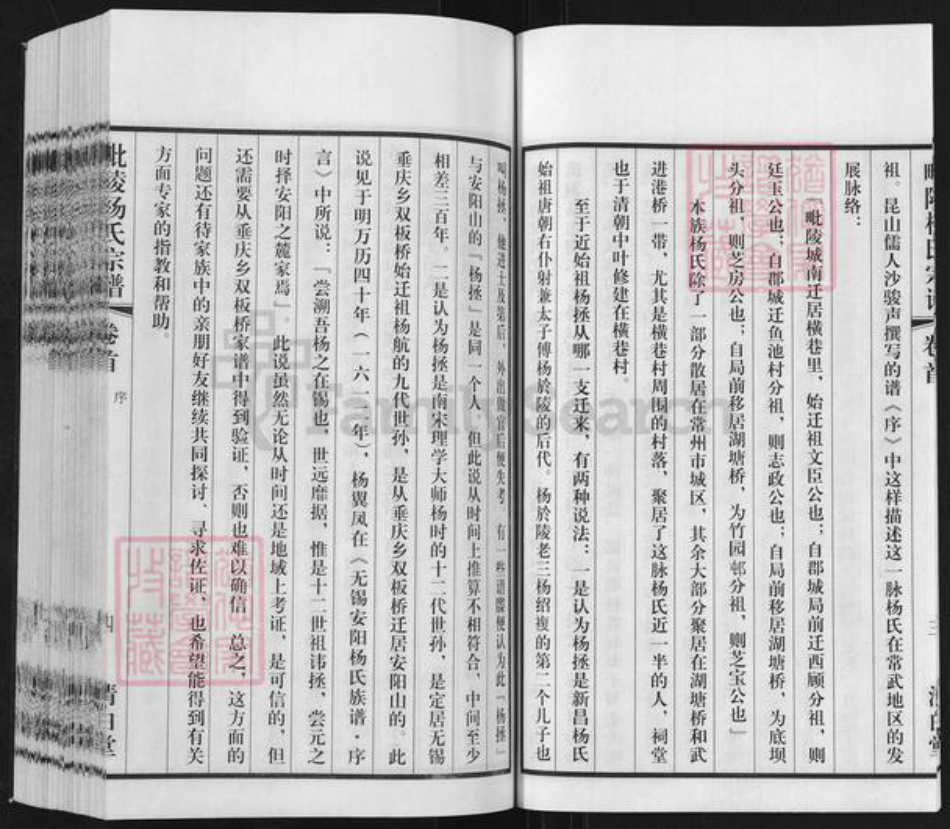 祖。昆山儒人沙骏声撰写的谱《序》中这样描述这一脉杨氏在常武地区的发
展脉络：
毗陵城南迁居横巷里，始迁祖文臣公也；自郡城局前迁西顾分祖，则
廷玉公也；自郡城迁鱼池村分祖，则志政公也；自局前移居湖塘桥，为底坝
头分祖，则芝房公也；自局前移居湖塘桥，为竹园邨分祖，则芝宝公也」
本族杨氏除了一部分散居在常州市城区，其余大部分聚居在湖塘桥和武
进港桥一带，尤其是横巷村周围的村落，聚居了这脉杨氏近一半的人，祠堂
也于清朝中叶修建在横巷村。
至于近始祖杨拯从哪一支迁来，有两种说法：一是认为杨拯是新昌杨氏
始祖唐朝右仆射兼太子傅杨於陵的后代。杨於陵老三杨绍複的第二个儿子也
叫杨拯，他进士及第后，外出做官后便失考，有一些谱牒便认为此『杨拯』
与安阳山的『杨拯』是同一个人。但此说从时间上推算不相符合，中间至少
相差三百年。二是认为杨拯是南宋理学大师杨时的十二代世孙，是定居无锡
垂庆乡双板桥始迁祖杨航的九代世孙，是从垂庆乡双板桥迁居安阳山的。此
说见于明万历四十年（一六一二年），杨翼凤在《无锡安阳杨氏族谱·序
言》中所说：『尝溯吾杨之在锡也，世远靡据，惟是十二世祖讳拯，尝元之
时择安阳之麓家焉』。此说虽然无论从时间还是地域上考证，是可信的，但
还需要从垂庆乡双板桥家谱中得到验证，否则也难以确信。总之，这方面的
问题还有待家族中的亲朋好友继续共同探讨、寻求佐证，也希望能得到有关
方面专家的指教和帮助。
毗陵杨氏宗谱
卷首
序
四
清白堂
FamilySearch